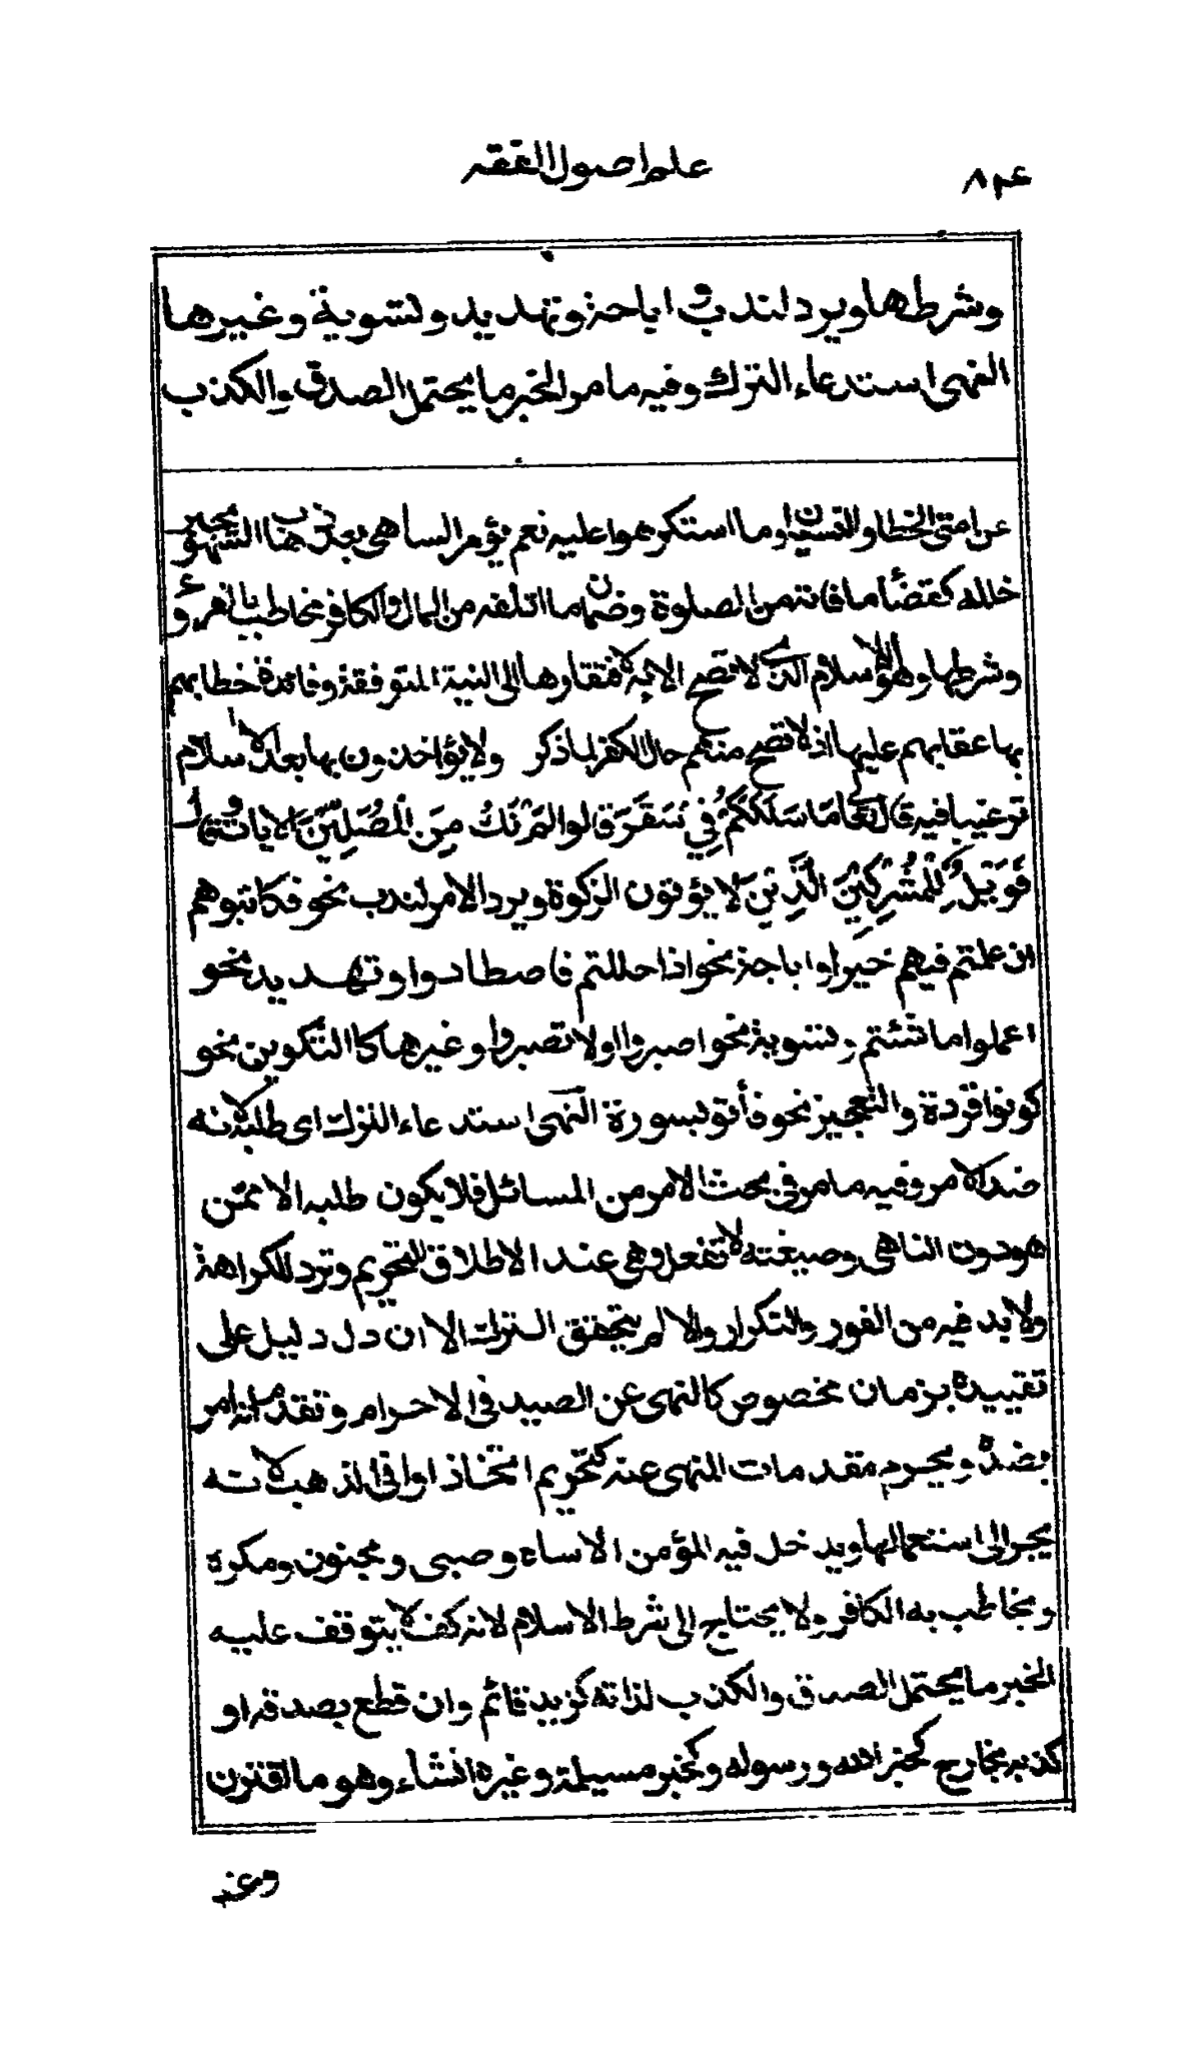 علم اصول الفقه
وشرطها ويرد لندب و اباحة وتهديد وتسوية وغيرها
النهى استدعاء الترك وفيه ما مر الخبر ما يحتمل الصدق والكذب
عن امتى الخطا والنسيان وما استكرهوا عليه نعم يؤمر الساهى بعد ذهاب السهو بجبر
خلله كقضأ ما فاته من الصلوة وضمان ما اتلفه من المال والكافر مخاطب بالفروع
وشرطها وهو الاسلام الذى لا تصح الا به لافتقارها الى النية المتوقفة وفائدة خطابهم
بها عقابهم عليها اذ لا تصح منهم حال الكفر لما ذكر ولا يؤاخذون بها بعد الاسلام
ترغيبا فيه قال تعالى مَا سَلَكَكُمْ فِي سَقَرَ قالوا لم نك مِنَ الْمُصَلِّيْنَ الايات وقال
فَوَيْلٌ لِلْمُشْرِكِيْنَ الَّذِيْنَ لَا يؤتون الزكوة ويرد الامر لندب نحو فكاتبوهم
ان علمتم فيهم خيرا واباحة نحو اذا حللتم فاصطادوا وتهديد نحو
اعملوا ما شئتم وتسوية نحو اصبروا اولا تصبروا وغيرها كالتكوين نحو
كونوا قردة والتعجيز نحو فأتو بسورة النهى استدعاء الترك اى طلبه لانه
ضد الامر وفيه ما مر فى بحث الامر من المسائل فلا يكون طلبه الا ممن
هو دون الناهى وصيغته لا تفعل وهى عند الاطلاق للتحريم وترد للكراهة
ولا بد فيه من الفور والتكرار والا لم يتحقق الترك الا ان دل دليل على
تقييده بزمان مخصوص كالنهى عن الصيد فى الاحرام وتقدم انه امر
بضده ويحرم مقدمات المنهى عنه كتحريم اتخاذ اوانى الذهب لانه
يجر الى استعمالها ويدخل فيه المؤمن الا ساه وصبى ومجنون ومكره
ويخاطب به الكافر ولا يحتاج الى شرط الاسلام لانه كف لا يتوقف عليه
الخبر ما يحتمل الصدق والكذب لذاته كزيد قائم وان قطع بصدقه او
كذبه بخارج كخبر الله ورسوله وكخبر مسيلمة وغيره انشاء وهو ما اقترن